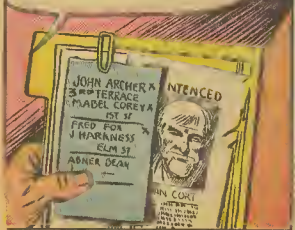 JOHN ARCHER X
3RD TERRACE
MABEL COREY X
1ST ST
FRED FOX X
J HARKNESS
ELM ST
ABNER DEAN
NTENCED
AN CORT